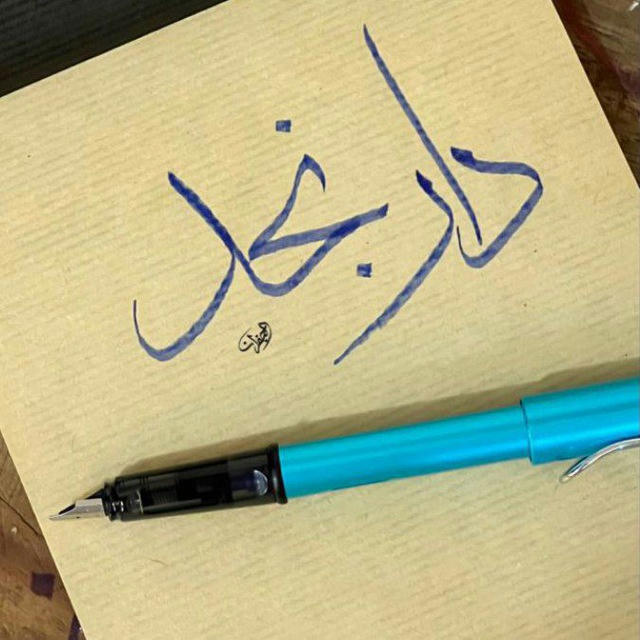 دار نجل